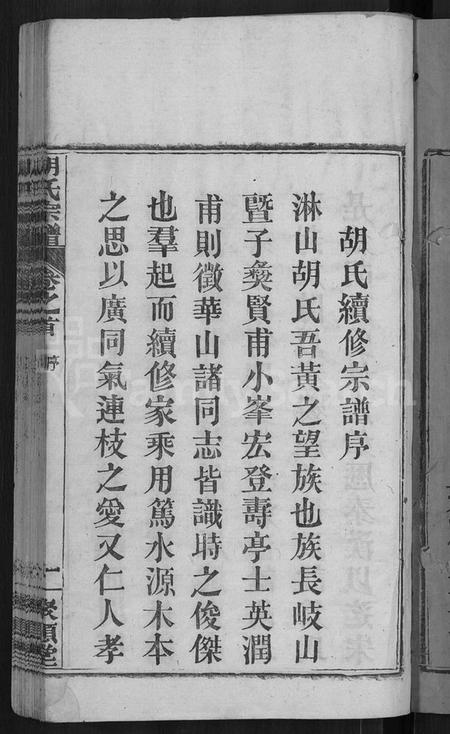 胡氏續修宗譜序
淋山胡氏吾黃之望族也族長岐山
暨子彝賢甫小峯宏登壽亭士英潤
甫則徵華山諸同志皆識時之俊傑
也羣起而續修家乘用篤水源木本
之思以廣同氣連枝之愛又仁人孝
胡氏宗譜 卷之首 序 一 聚順堂